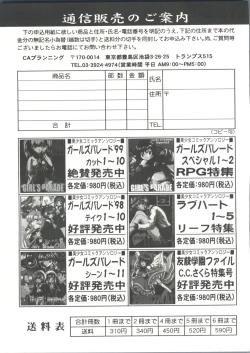 通信販売のご案内
下の申込用紙に欲しい商品と住所・氏名・電話番号を明記のうえ、下記の住所まで本の代
金分の無記名小為替(歯数は切手)と送料分の切手を同封してお申込み下さい。尚、ご質問等
ございましたらお電話にてお問い合わせ下さい。
CAプランニング 〒170-0014 東京都豊島区池袋3-26-25 トランプス515
TEL.03-3924-4974(営業時間 平日 AM9:00~PM5:00)
商品名 部数 金額 氏名
住所 〒
合計 TEL.
(コピー可)
■美少女コミックアンソロジー■
ガールズパレード99
カット1~10
絶賛発売中
各定価:980円(税込)
■美少女コミックアンソロジー■
ガールズパレード
スペシャル1~2
RPG特集
各定価:980円(税込)
■美少女コミックアンソロジー■
ガールズパレード98
テイク1~10
好評発売中
各定価:980円(税込)
■美少女コミックアンソロジー■
ラブハート
1~5
リーフ特集
各定価:980円(税込)
■美少女コミックアンソロジー■
ガールズパレード
シーン1~11
好評発売中
各定価:980円(税込)
■美少女コミックアンソロジー■
友録学園ファイル
C.C.さくら特集号
好評発売中
各定価:980円(税込)
送料表
合計冊数 1冊まで 2冊まで 4冊まで 5冊まで 6冊まで
送料 310円 340円 450円 520円 590円